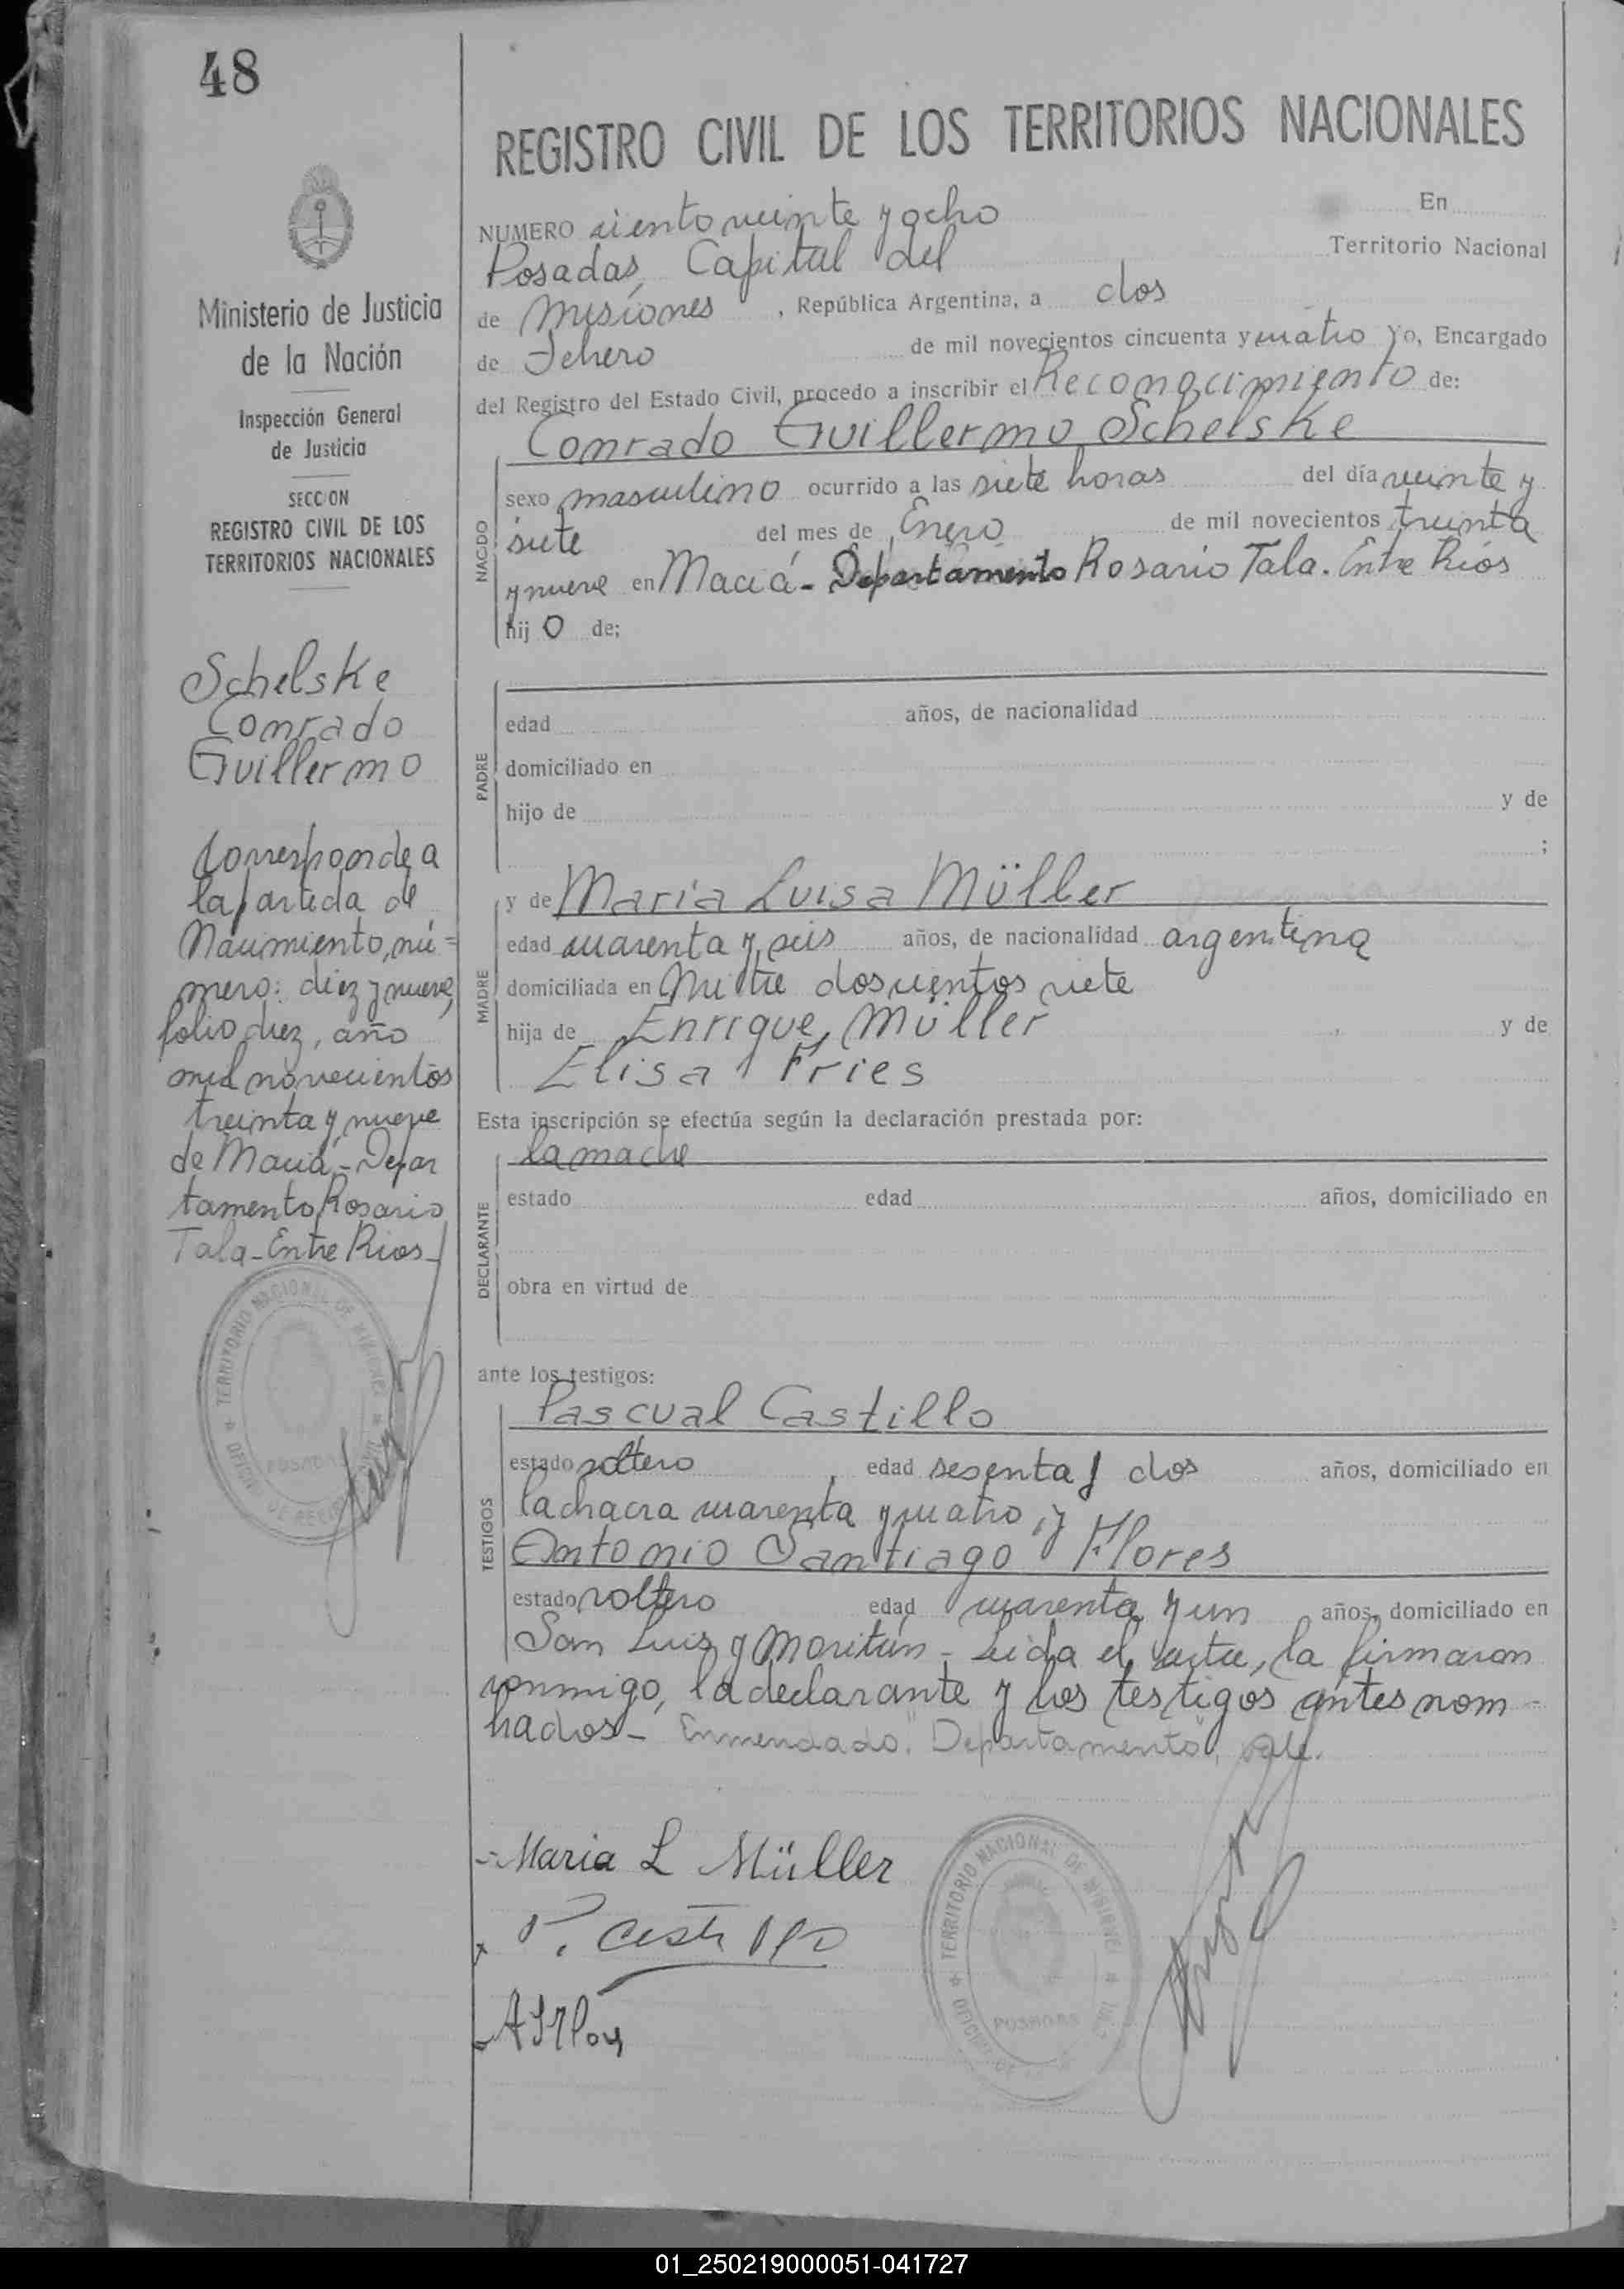 48
REGISTRO CIVIL DE LOS TERRITORIOS NACIONALES
Ministerio de Justicia
de la Nación
Inspección General
de Justicia
SECCION
REGISTRO CIVIL DE LOS
TERRITORIOS NACIONALES
Schelske
Conrado
Guillermo
Corresponde a
la partida de
Nacimiento, nú=
mero: diez y nueve,
folio diez, año
mil novecientos
treinta y nueve
de Maciá-Depar
tamento Rosario
Tala-Entre Rios-
TERRITORIO NACIONAL DE MISIONES
POSADAS
NUMERO ciento veinte y ocho En
Posadas, Capital del Territorio Nacional
de Misiones, República Argentina, a dos
de Febrero de mil novecientos cincuenta y cuatro Yo, Encargado
del Registro del Estado Civil, procedo a inscribir el Reconocimiento de:
Conrado Guillermo Schelske
NACIDO
sexo masculino ocurrido a las siete horas del día veinte y
siete del mes de Enero de mil novecientos treinta
y nueve en Maciá-Departamento Rosario Tala. Entre Rios
hij o de;
PADRE
edad años, de nacionalidad
domiciliado en
hijo de y de
;
MADRE
y de María Luisa Müller
edad cuarenta y seis años, de nacionalidad argentina
domiciliada en Mitre doscientos siete
hija de Enrique Müller y de
Elisa Fries
Esta inscripción se efectúa según la declaración prestada por:
DECLARANTE
la madre
estado edad años, domiciliado en
obra en virtud de
ante los testigos:
TESTIGOS
Pascual Castillo
estado soltero, edad sesenta y dos años, domiciliado en
la chacra cuarenta y cuatro, y
Antonio Santiago Flores
estado soltero edad cuarenta y un años, domiciliado en
San Luis y Moritán - Leida el acta, la firmaron
conmigo, la declarante y los testigos antes nom-
brados- Enmendado: "Departamento", vale.
-Maria L Müller
P. Castillo
TERRITORIO NACIONAL DE MISIONES
POSADAS
01_250219000051-041727